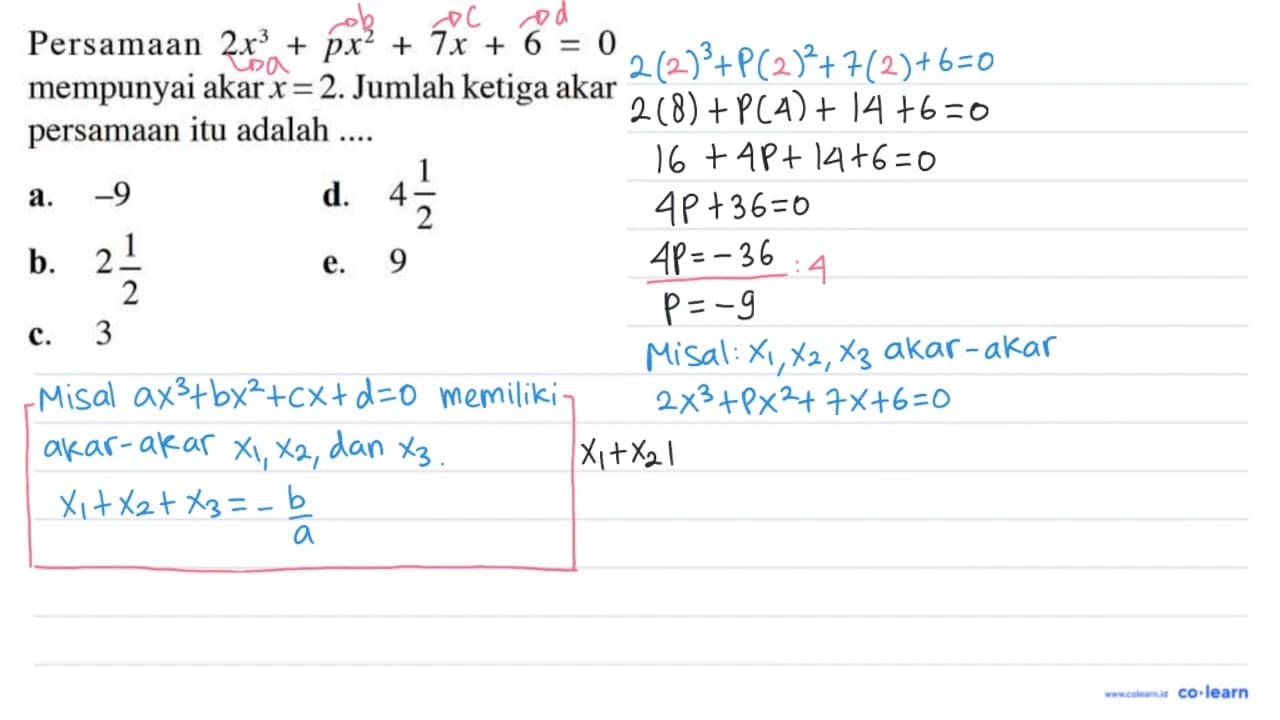 Persamaan 2x³ + px² + 7x + 6 = 0
→a →b →c →d
mempunyai akar x = 2. Jumlah ketiga akar
persamaan itu adalah ....
a. –9
b. 2 1/2
c. 3
d. 4 1/2
e. 9
2(2)³+P(2)²+7(2)+6=0
2(8)+P(4)+14+6=0
16+4P+14+6=0
4P+36=0
4P=-36 :4
P=-9
Misal: x₁, x₂, x₃ akar-akar
2x³+Px²+7x+6=0
Misal ax³+bx²+cx+d=0 memiliki
akar-akar x₁, x₂, dan x₃.
x₁+x₂+x₃=-b/a
x₁+x₂1
www.colearn.id co·learn